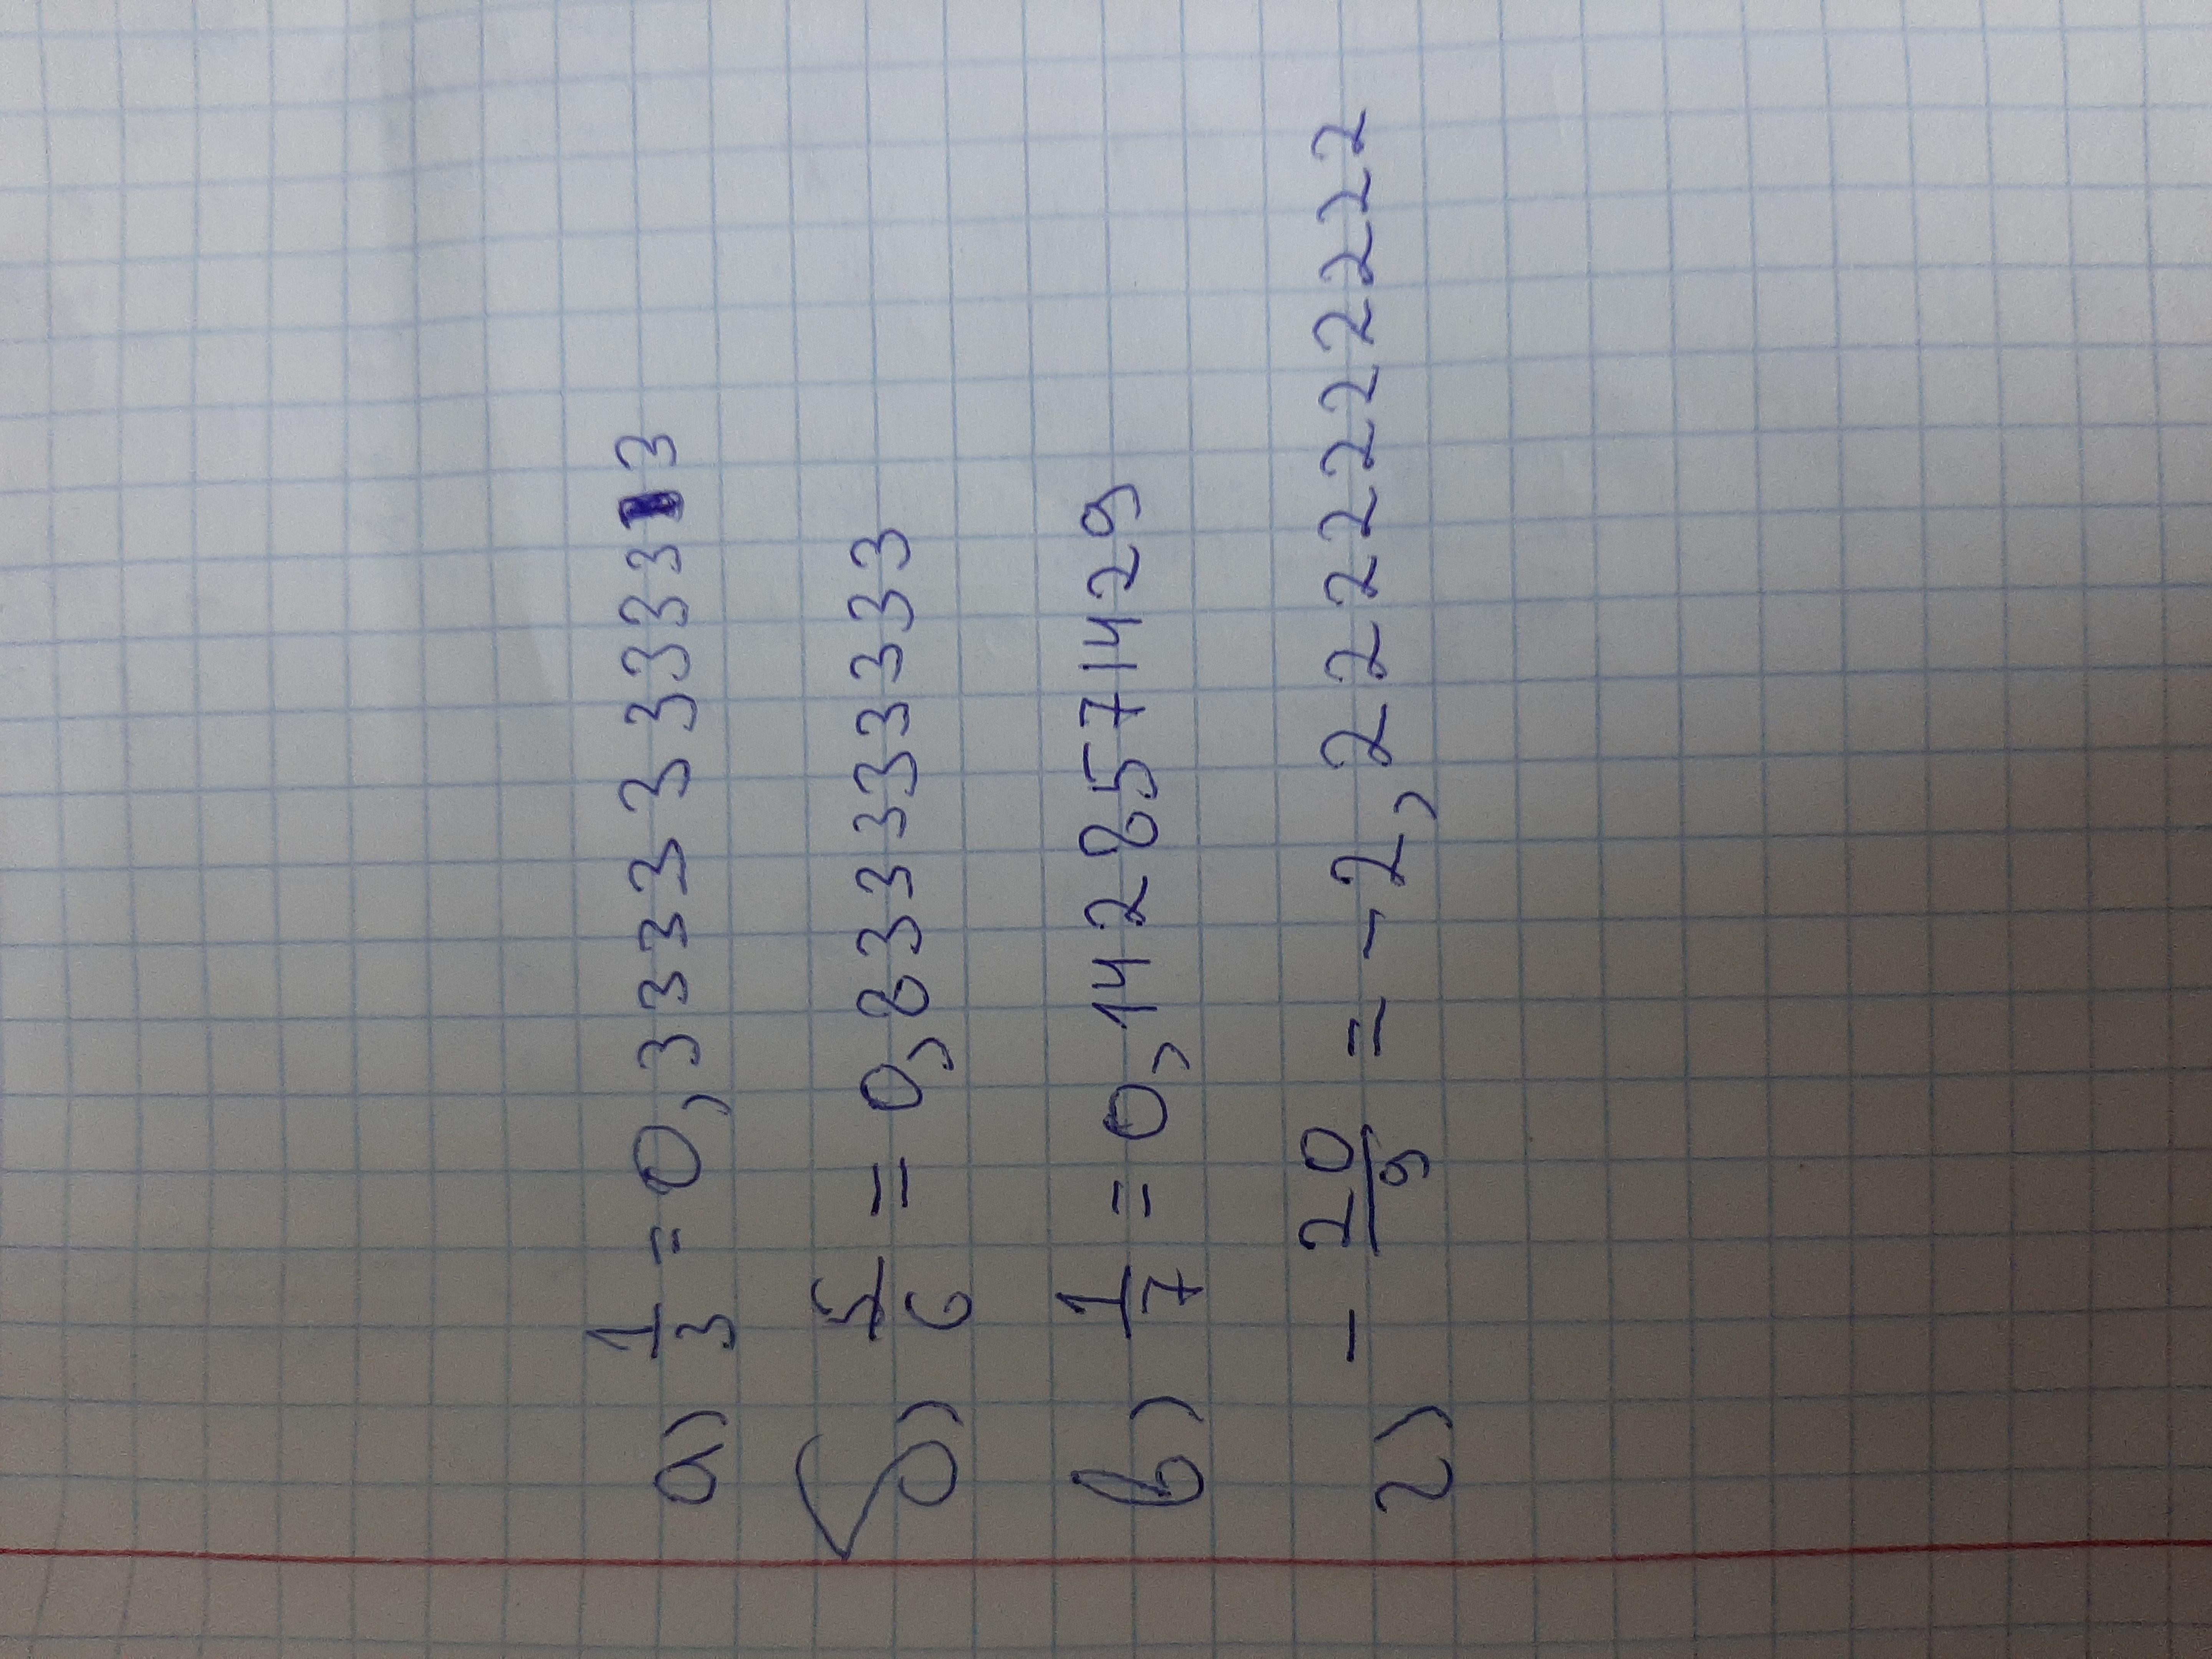 а) 1/3 = 0,3333333333
б) 5/6 = 0,833333333
в) 1/7 = 0,1428571429
г) - 20/9 = -2,2222222222